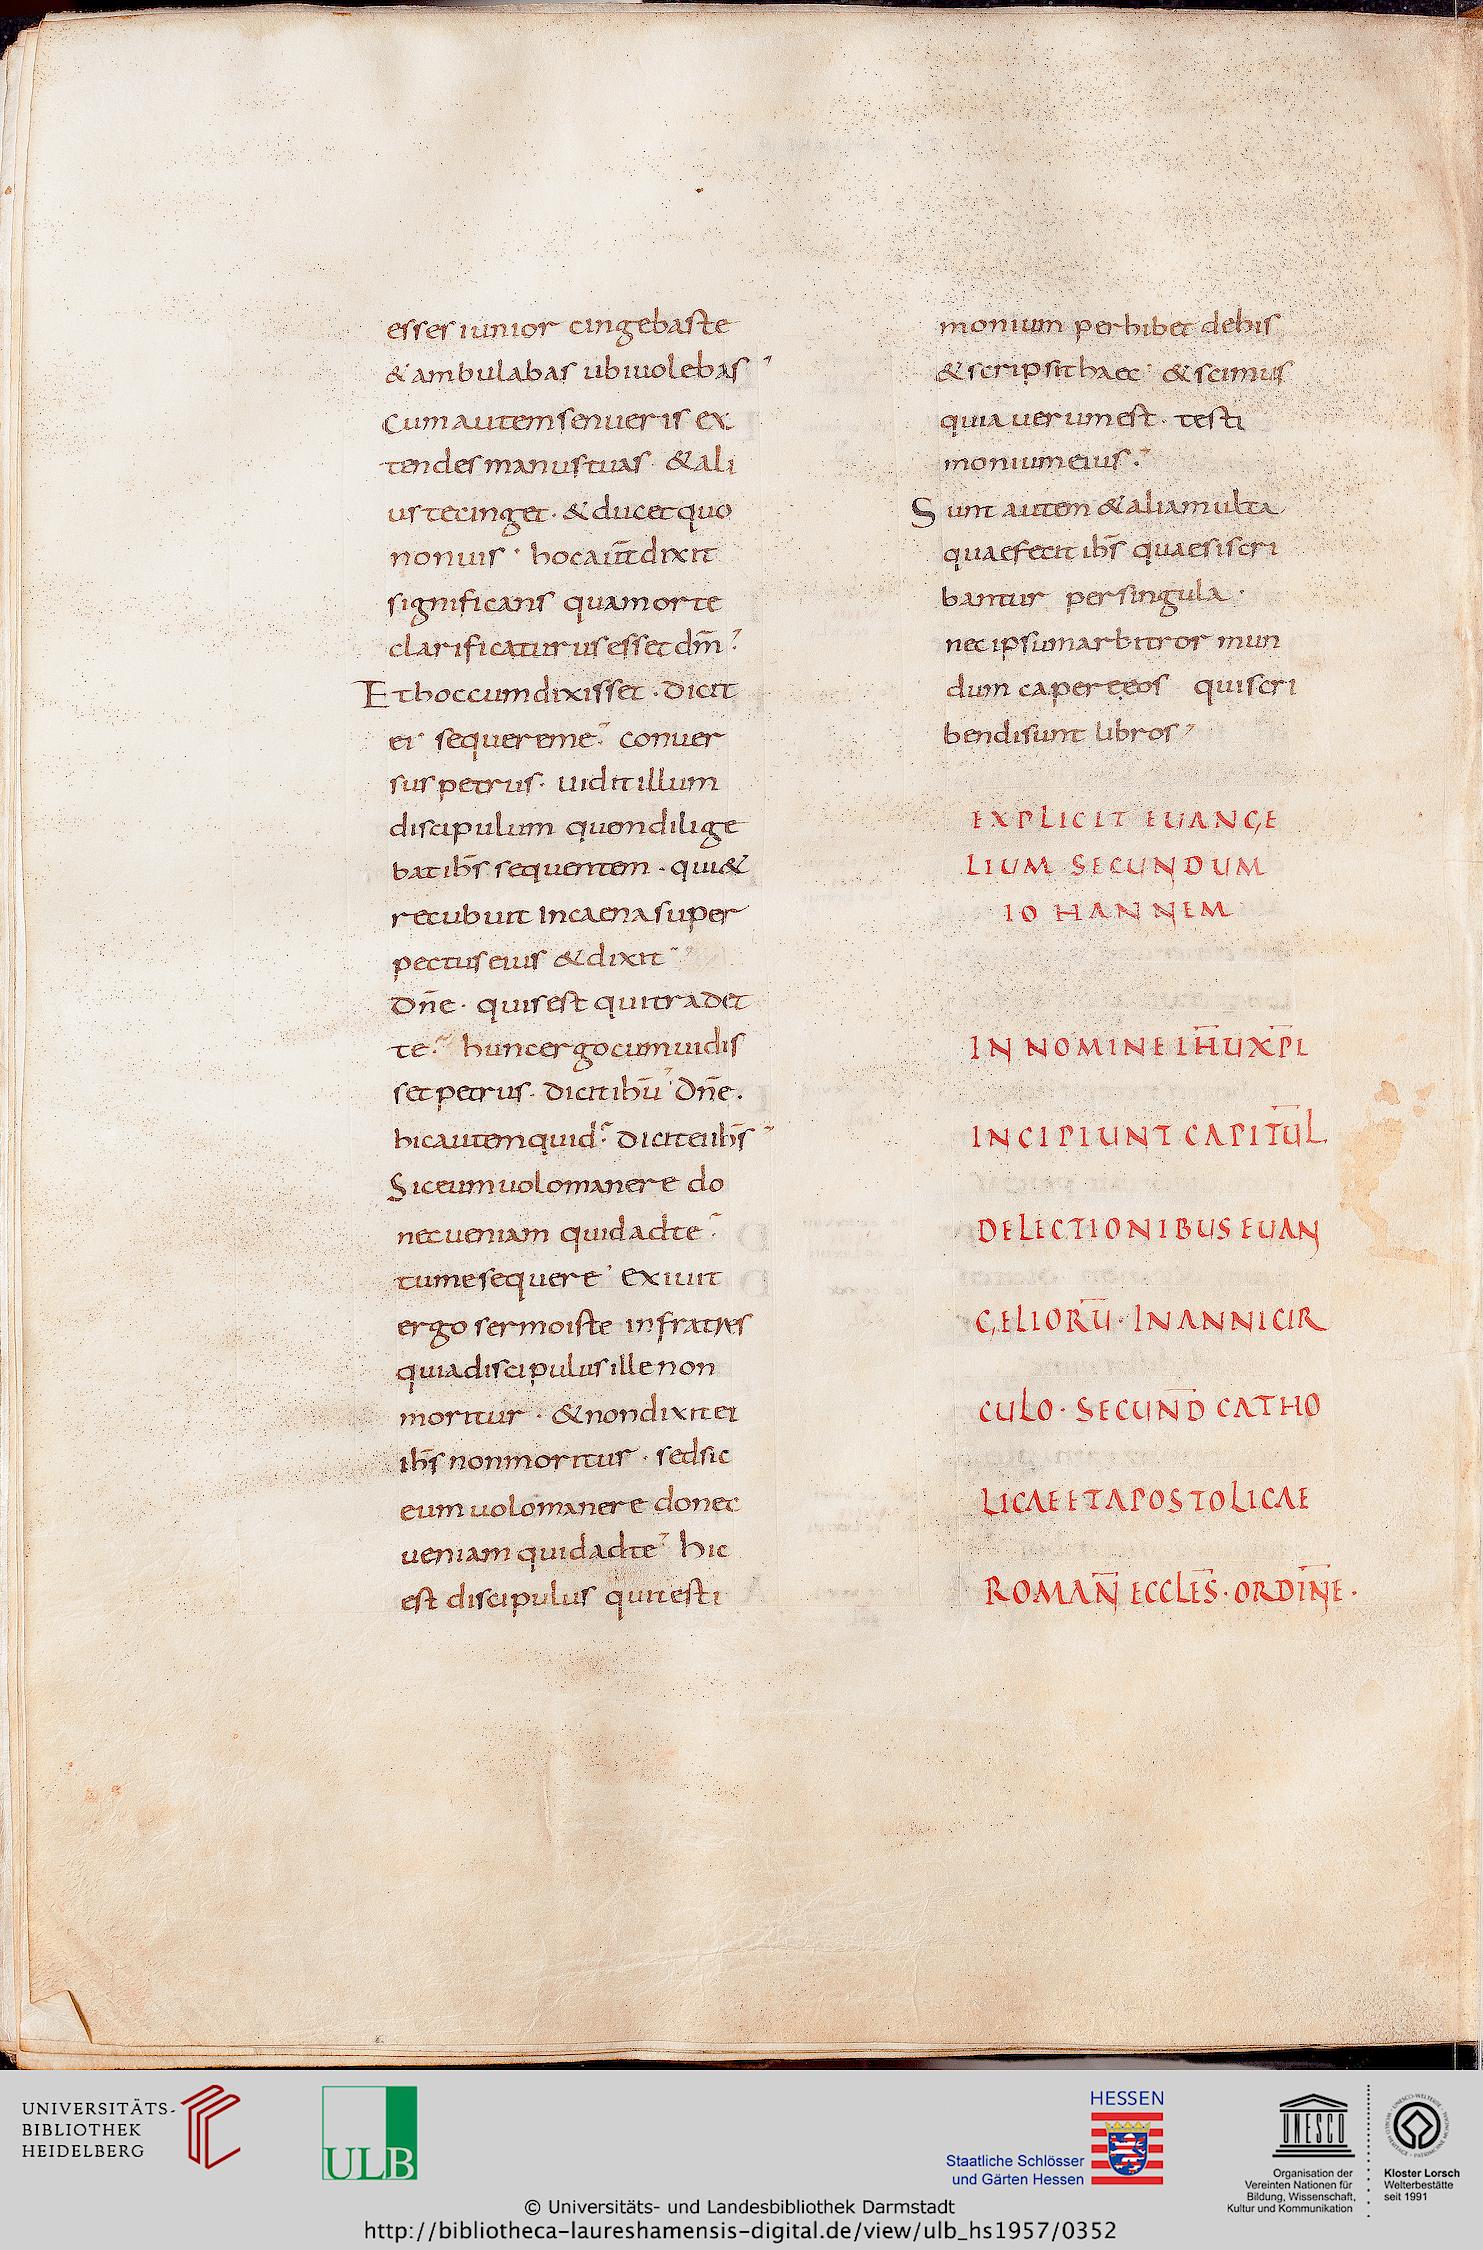 esses iunior cingebaste
& ambulabas ubiuolebas
Cum autem senueris ex
tendes manus tuas · & ali
us te cinget · & ducet quo
non uis · hoc aūt dixit
significans qua morte
clarificaturus esset dm̄
Et hoc cum dixisset · dicit
ei sequere me conuer
sus petrus · uidit illum
discipulum quem dilige
bat ihs̄ sequentem · qui &
recubuit In caena super
pectus eius & dixit
Dn̄e · quis est qui tradet
te hunc ergo cum uidis
set petrus · dicit ihū Dn̄e ·
hic autem quid dicit ei ihs̄
Sic eum uolo manere do
nec ueniam quid ad te
tu me sequere exiuit
ergo sermo iste in fratres
quia discipulus ille non
moritur · & non dixit ei
ihs̄ non moritur · sed sic
eum uolo manere donec
ueniam quid ad te hic
est discipulus qui testi
monium perhibet de his
& scripsit haec & scimus
quia uerum est · testi
monium eius
Sunt autem & alia multa
quae fecit ihs̄ quae si scri
bantur per singula ·
nec ipsum arbitror mun
dum capere eos qui scri
bendi sunt libros
EXPLICIT EUANGE
LIUM SECUNDUM
IOHANNEM
IN NOMINE IH̄U XP̄I
INCIPIUNT CAPITŪL
DE LECTIONIBUS EUAN
GELIORŪ · IN ANNI CIR
CULO · SECUND̄ CATHO
LICAE ET APOSTOLICAE
ROMAN̄ ECCLĒS · ORDIN̄E ·
UNIVERSITÄTS-
BIBLIOTHEK
HEIDELBERG
ULB
HESSEN
Staatliche Schlösser
und Gärten Hessen
UNESCO
Organisation der
Vereinten Nationen für
Bildung, Wissenschaft,
Kultur und Kommunikation
Kloster Lorsch
Welterbestätte
seit 1991
© Universitäts- und Landesbibliothek Darmstadt
http://bibliotheca-laureshamensis-digital.de/view/ulb_hs1957/0352